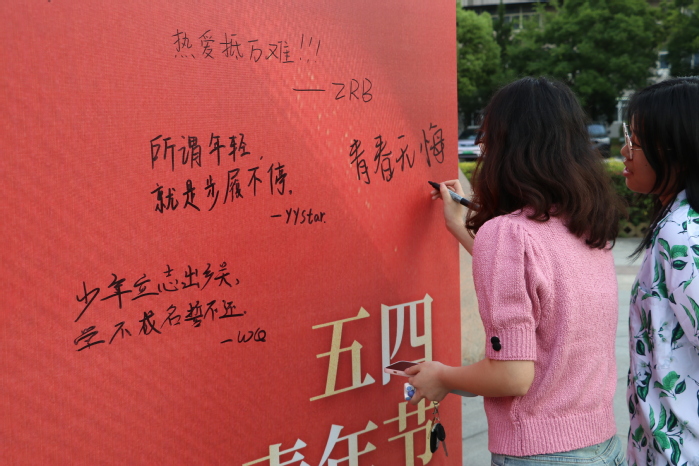 热爱抵万难!!!
—ZRB
所谓年轻,
就是步履不停.
—YYstar.
青春无悔
少年立志出乡关,
学不成名誓不还.
—WQ
五四
青年节